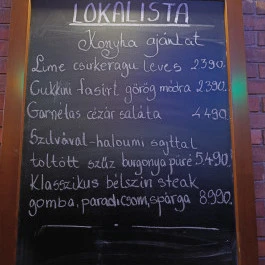 LOKALISTA
Konyha ajánlat
Lime csirkeragu leves 2390.
Cukkini fasírt görög módra 2390.
Garnélás cézár saláta 4490.
Szilvával-haloumi sajttal
töltött szűz burgonya püré 5490.
Klasszikus bélszín steak
gomba, paradicsom, spárga 8990.